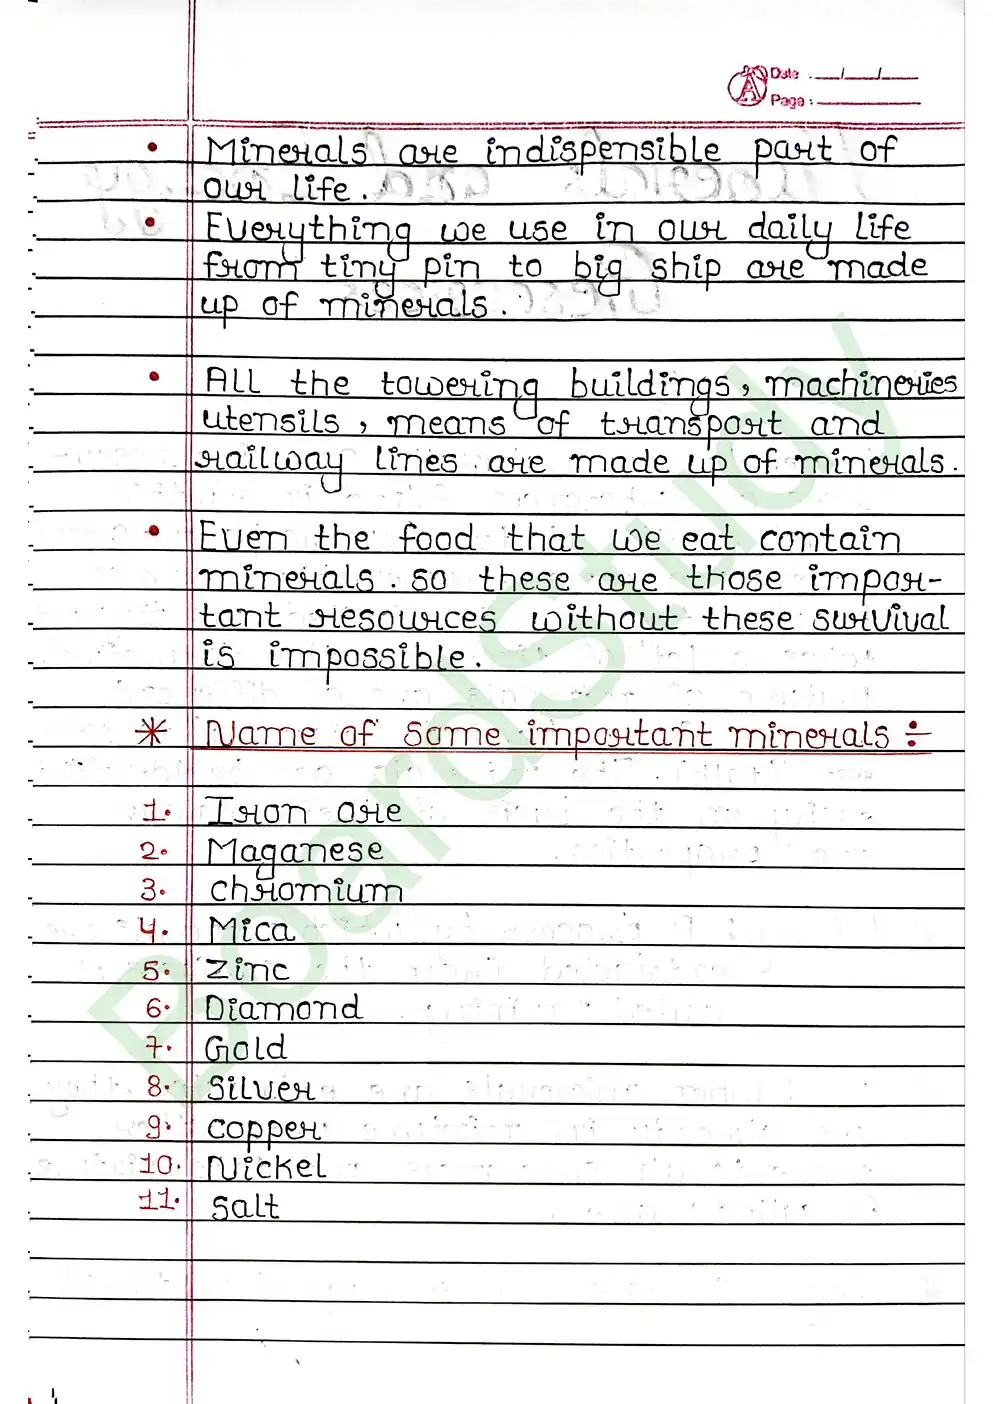 Date : ___/___/___
Page : ___________
• Minerals are indispensible part of
our life.
• Everything we use in our daily life
from tiny pin to big ship are made
up of minerals.
• All the towering buildings, machineries
utensils, means of transport and
railway lines are made up of minerals.
• Even the food that we eat contain
minerals. so these are those impor-
tant resources without these survival
is impossible.
* Name of some important minerals ÷
1. Iron ore
2. Maganese
3. chromium
4. Mica
5. Zinc
6. Diamond
7. Gold
8. Silver
9. copper
10. Nickel
11. Salt
BoardStudy